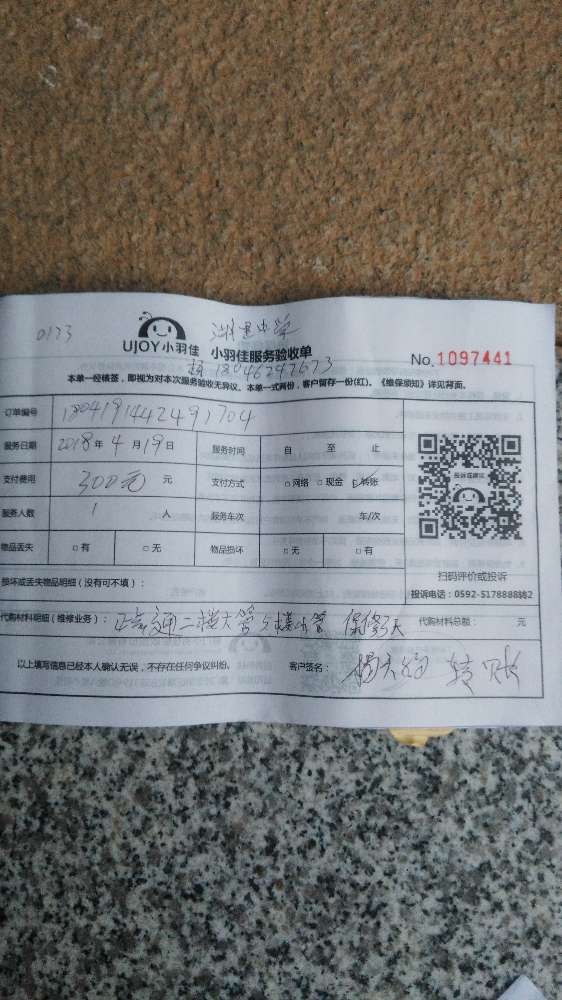 0173
湖里中学
UJOY小羽佳 小羽佳服务验收单
No.1097441
杨 18046247673
本单一经核签，即视为对本次服务验收无异议。本单一式两份，客户留存一份(红)。《维保须知》详见背面。
订单编号 1804191442491704
服务日期 2018年4月19日 服务时间 自 至 止
支付费用 300元 元 支付方式 □网络 □现金 ☑转账
服务人数 1 人 服务车次 车/次
物品丢失 □有 □无 物品损坏 □无 □有
投诉或建议
扫码评价或投诉
损坏或丢失物品明细（没有可不填）：
投诉电话：0592-5178888转2
代购材料明细（维修业务）： 疏通二楼大管5楼小管 保修3天
代购材料总额： 元
以上填写信息已经本人确认无误，不存在任何争议纠纷。 客户签名： 转账